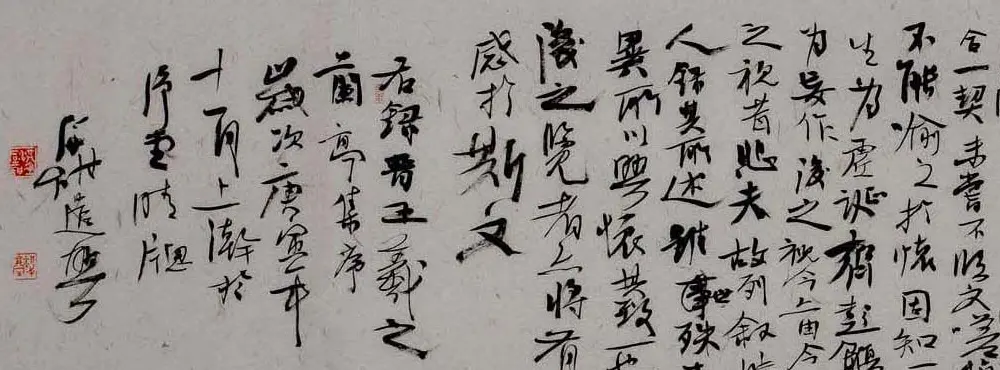 合一契未嘗不臨文嗟悼
不能喻之於懷固知一
生為虛誕齊彭殤
為妄作後之視今亦由今
之視昔悲夫故列敘時
人錄其所述雖世殊事
異所以興懷其致一也
後之覽者亦將有
感於斯文
右錄晉王羲之
蘭亭集序
歲次庚寅年
十一月上澣於
晴窗